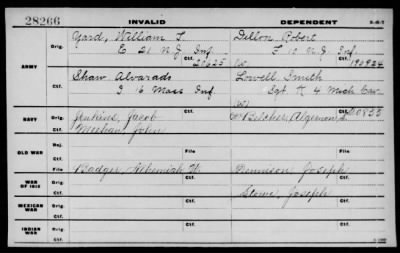 28266 INVALID DEPENDENT 3-007
ARMY
Orig. Yard, William T. Dillon, Robert
E 21 N.J. Inf. F 10 N.J. Inf.
Ctf. 21625 190924
Orig. Shaw, Alvarado Lowell, Smith
I 16 Mass Inf. Sgt K 4 Mich Cav
Ctf.
NAVY
Orig. Jenkins, Jacob Belcher, Algernon
Ctf. Meehan, John
OLD WAR
Rej.
Ctf. File File
WAR OF 1812
Orig. Badger, Nehemiah W. Dennison, Joseph
Ctf. Stowe, Joseph
MEXICAN WAR
Orig.
Ctf.
INDIAN WAR
Orig.
Ctf.